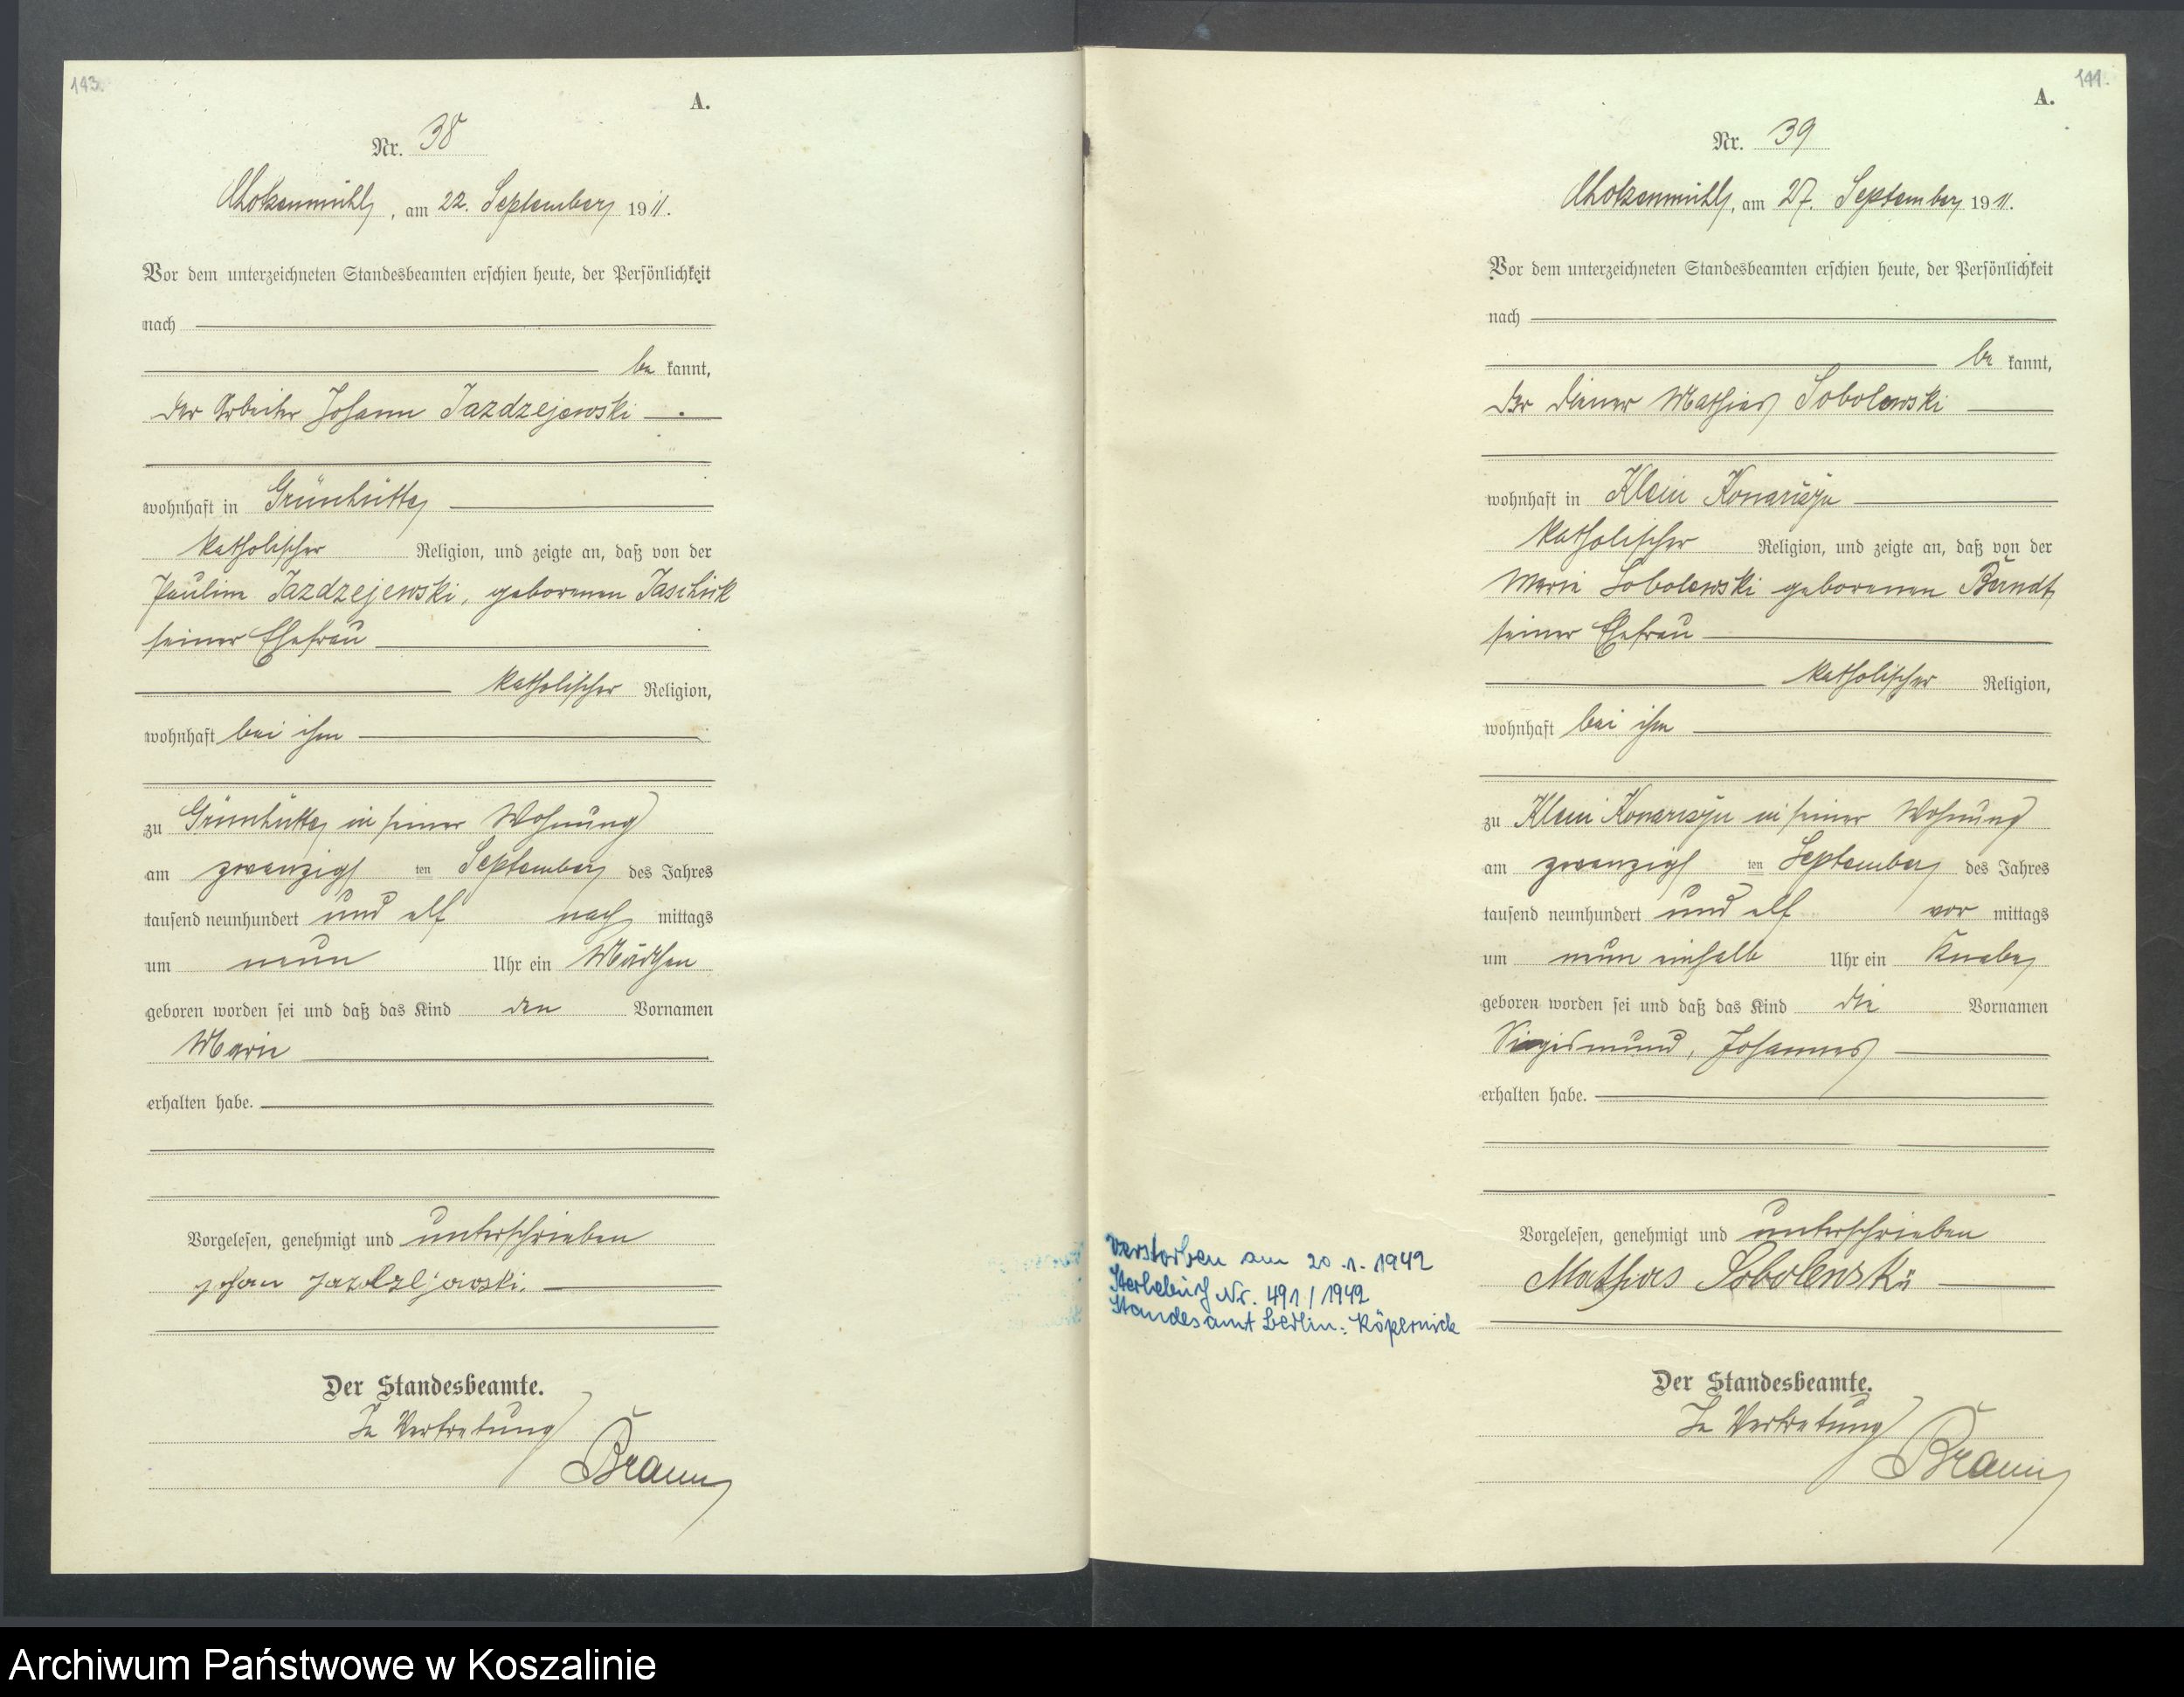 143.
A.
Nr. 38
Chotzenmühl, am 22. September 1911.
Vor dem unterzeichneten Standesbeamten erschien heute, der Persönlichkeit
nach
be kannt,
der Arbeiter Johann Jazdzejewski
wohnhaft in Grünhütte
katholischer Religion, und zeigte an, daß von der
Pauline Jazdzejewski, geborenen Jaschik
seiner Ehefrau
katholischer Religion,
wohnhaft bei ihm
zu Grünhütte, in seiner Wohnung
am zwanzigsten September des Jahres
tausend neunhundert und elf nach mittags
um neun Uhr ein Mädchen
geboren worden sei und daß das Kind den Vornamen
Marie
erhalten habe.
Vorgelesen, genehmigt und unterschrieben
Johan Jazdzejewski.
Der Standesbeamte.
In Vertretung
Braun
144.
A.
Nr. 39
Chotzenmühl, am 27. September 1911.
Vor dem unterzeichneten Standesbeamten erschien heute, der Persönlichkeit
nach
be kannt,
der Diener Mathias Sobolewski
wohnhaft in Klein Konarczyn
katholischer Religion, und zeigte an, daß von der
Marie Sobolewski geborenen Berndt,
seiner Ehefrau
katholischer Religion,
wohnhaft bei ihm
zu Klein Konarczyn in seiner Wohnung
am zwanzigsten September des Jahres
tausend neunhundert und elf vor mittags
um neun einhalb Uhr ein Knabe
geboren worden sei und daß das Kind die Vornamen
Siegismund, Johannes
erhalten habe.
Vorgelesen, genehmigt und unterschrieben
Mathias Sobolewski
verstorben am 20.1.1942
Sterbebuch Nr. 491/1942
Standesamt Berlin-Köpernick
Der Standesbeamte.
In Vertretung
Braun
Archiwum Państwowe w Koszalinie